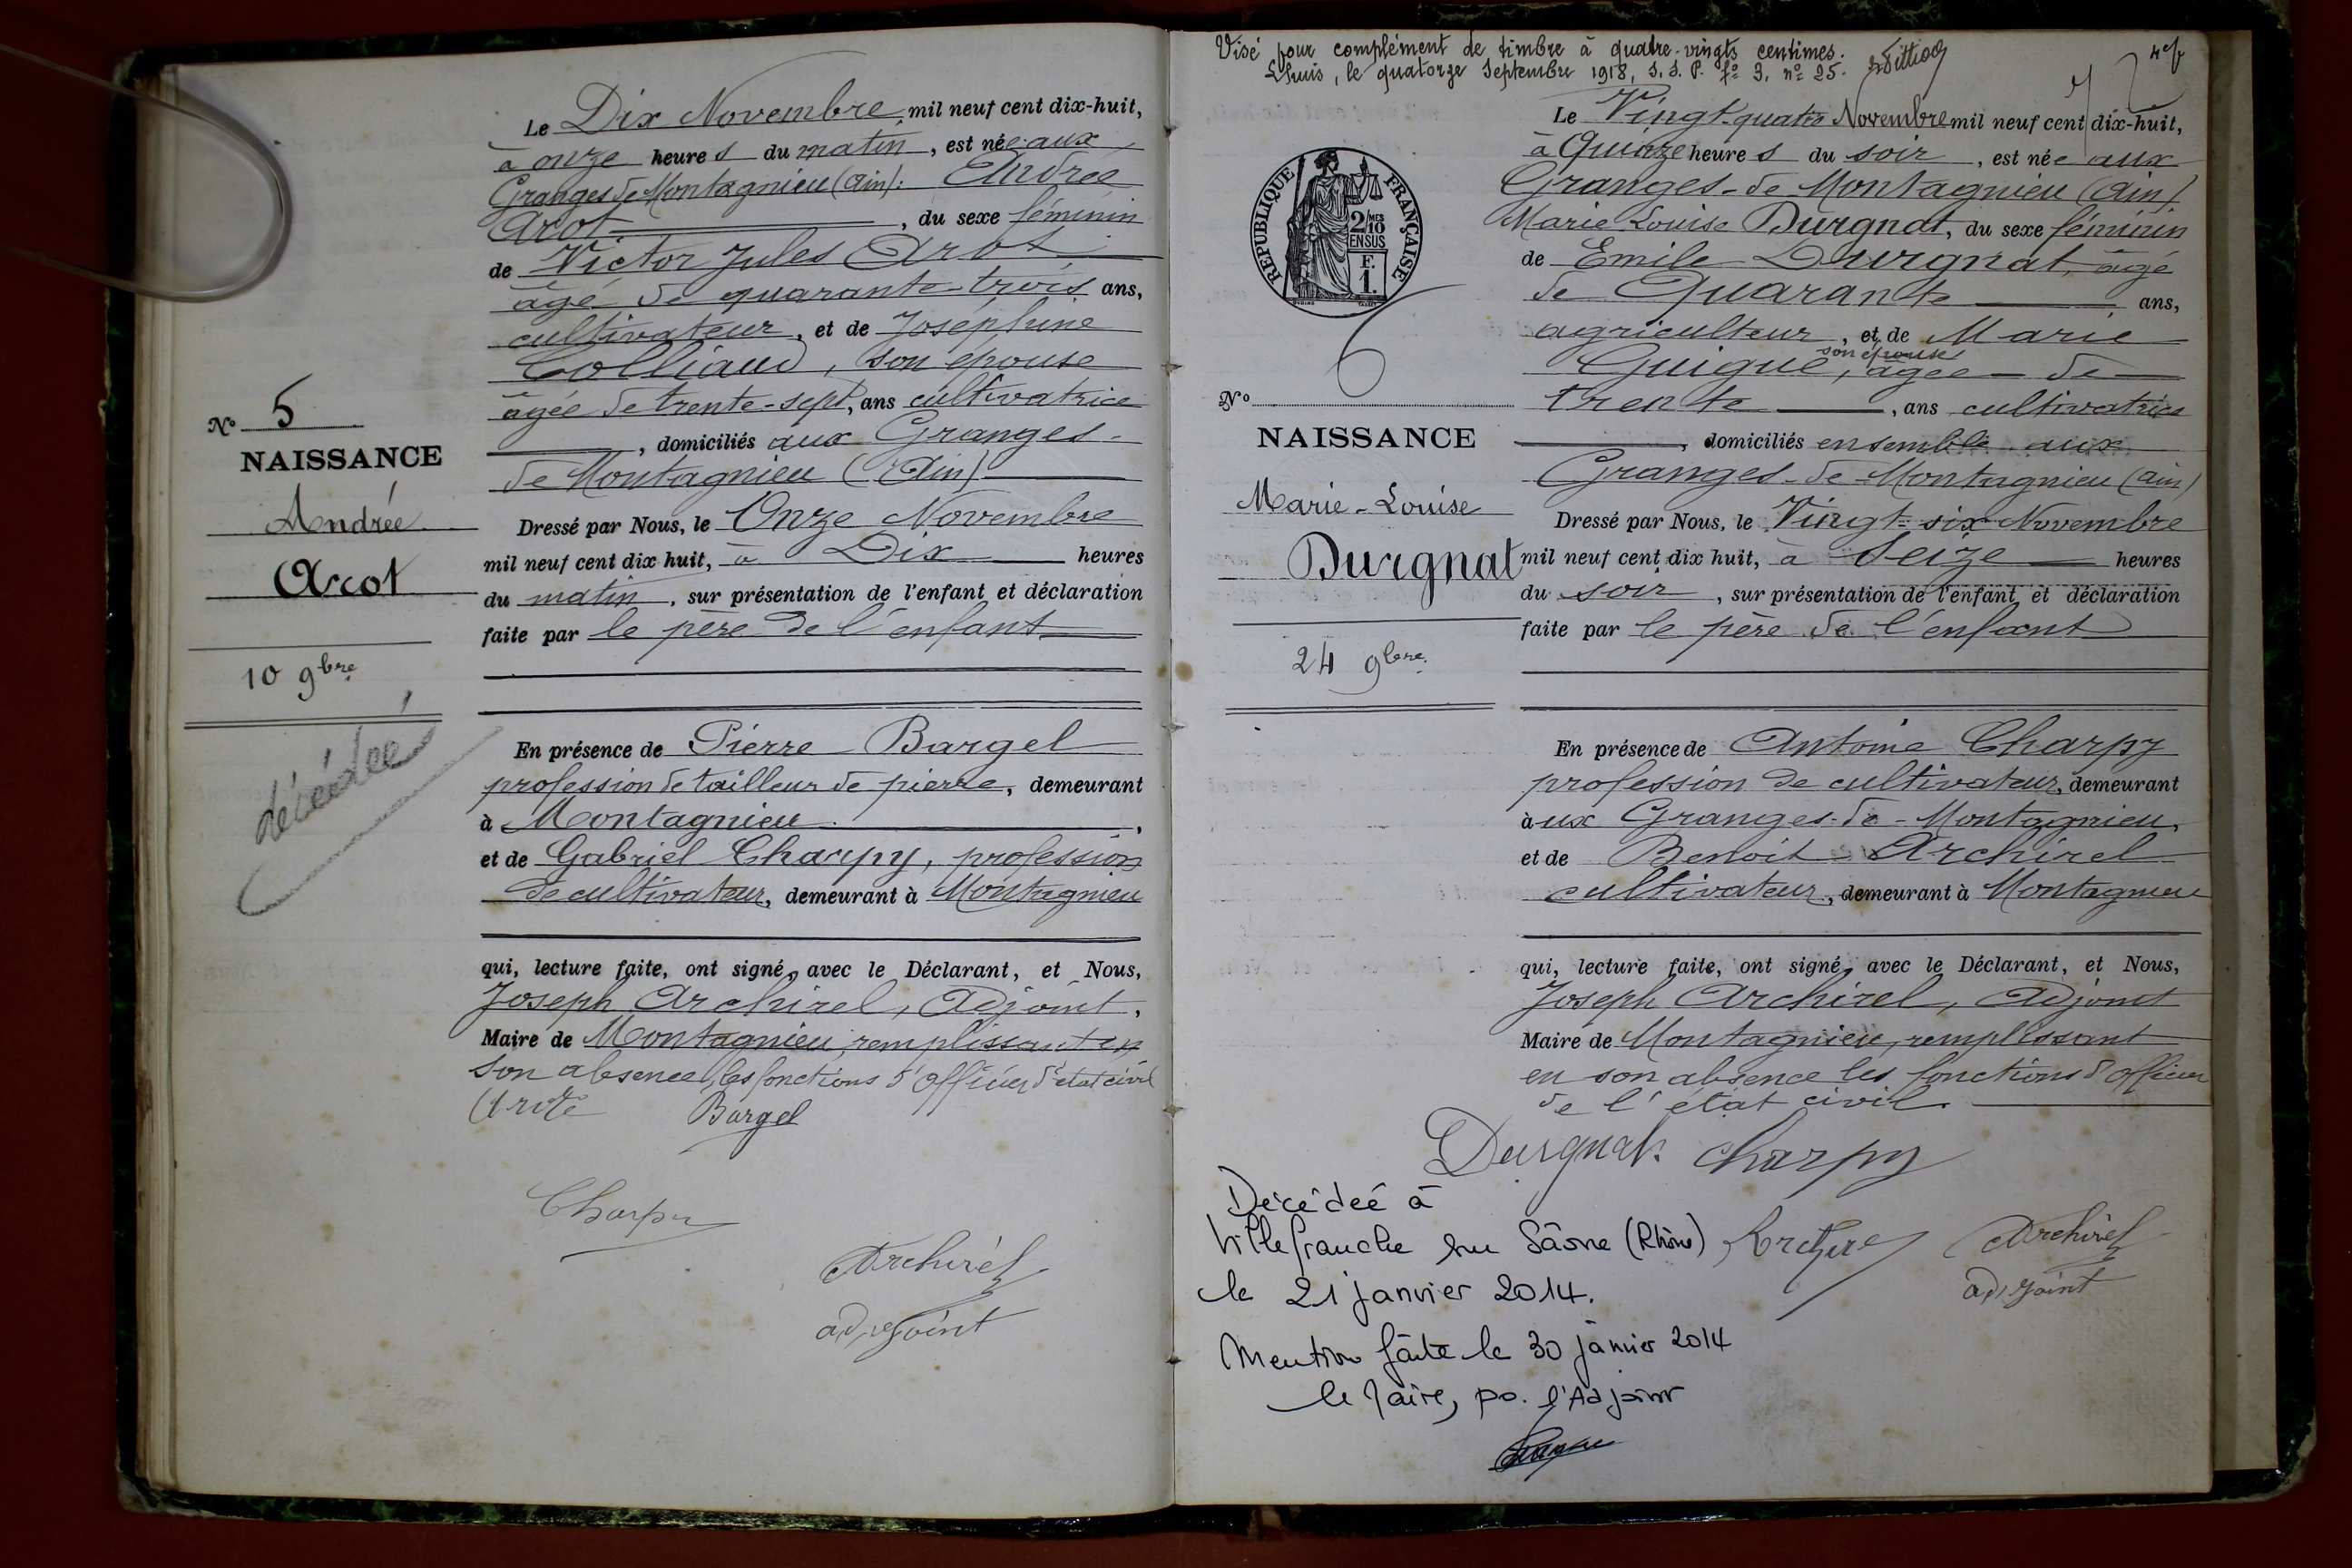 Le Dix Novembre mil neuf cent dix-huit,
à onze heure s du matin, est née aux
Granges de Montagnieu (Ain): Andrée
Arot, du sexe féminin
de Victor Jules Arot
âgé de quarante-trois ans,
cultivateur, et de Joséphine
Colliaud, son épouse
âgée de trente-sept, ans cultivatrice
, domiciliés aux Granges-
de Montagnieu (Ain)
Dressé par Nous, le Onze Novembre
mil neuf cent dix huit, à Dix heures
du matin, sur présentation de l'enfant et déclaration
faite par le père de l'enfant
En présence de Pierre Bargel
profession de tailleur de pierre, demeurant
à Montagnieu,
et de Gabriel Charpy, profession
de cultivateur, demeurant à Montagnieu
qui, lecture faite, ont signé avec le Déclarant, et Nous,
Joseph Archirel, Adjoint,
Maire de Montagnieu, remplissant en
son absence les fonctions d'officier d'état civil
Bargel
Charpy
Archirel
adjoint
No 5
NAISSANCE
Andrée
Arot
10 9bre
décédée
Visé pour complément de timbre à quatre-vingts centimes.
Lhuis, le quatorze Septembre 1918, S.S.P. fo 3, no 25.
RÉPUBLIQUE FRANÇAISE
2/10MES
EN SUS
F.
1.
6
No
NAISSANCE
Marie-Louise
Durgnat
24 9bre
Le Vingt-quatre Novembre mil neuf cent dix-huit,
à Quinze heure s du soir, est née aux
Granges-de Montagnieu (Ain)
Marie Louise Durgnat, du sexe féminin
de Emile Durgnat, âgé
de Quarante ans,
agriculteur, et de Marie
son épouse
Guigue, âgée de
trente, ans cultivatrice
, domiciliés ensemble aux
Granges-de-Montagnieu (Ain)
Dressé par Nous, le Vingt-six Novembre
mil neuf cent dix huit, à Seize heures
du soir, sur présentation de l'enfant et déclaration
faite par le père de l'enfant
En présence de Antoine Charpy
profession de cultivateur, demeurant
àux Granges-de-Montagnieu,
et de Benoit Archirel
cultivateur, demeurant à Montagnieu
qui, lecture faite, ont signé avec le Déclarant, et Nous,
Joseph Archirel, Adjoint
Maire de Montagnieu, remplissant
en son absence les fonctions d'officier
de l'état civil.
Durgnat. Charpy
Archirel
adjoint
Décédée à
Villefranche sur Sâone (Rhône)
le 21 janvier 2014.
Mention faite le 30 janvier 2014
le Maire, po. l'Adjoint